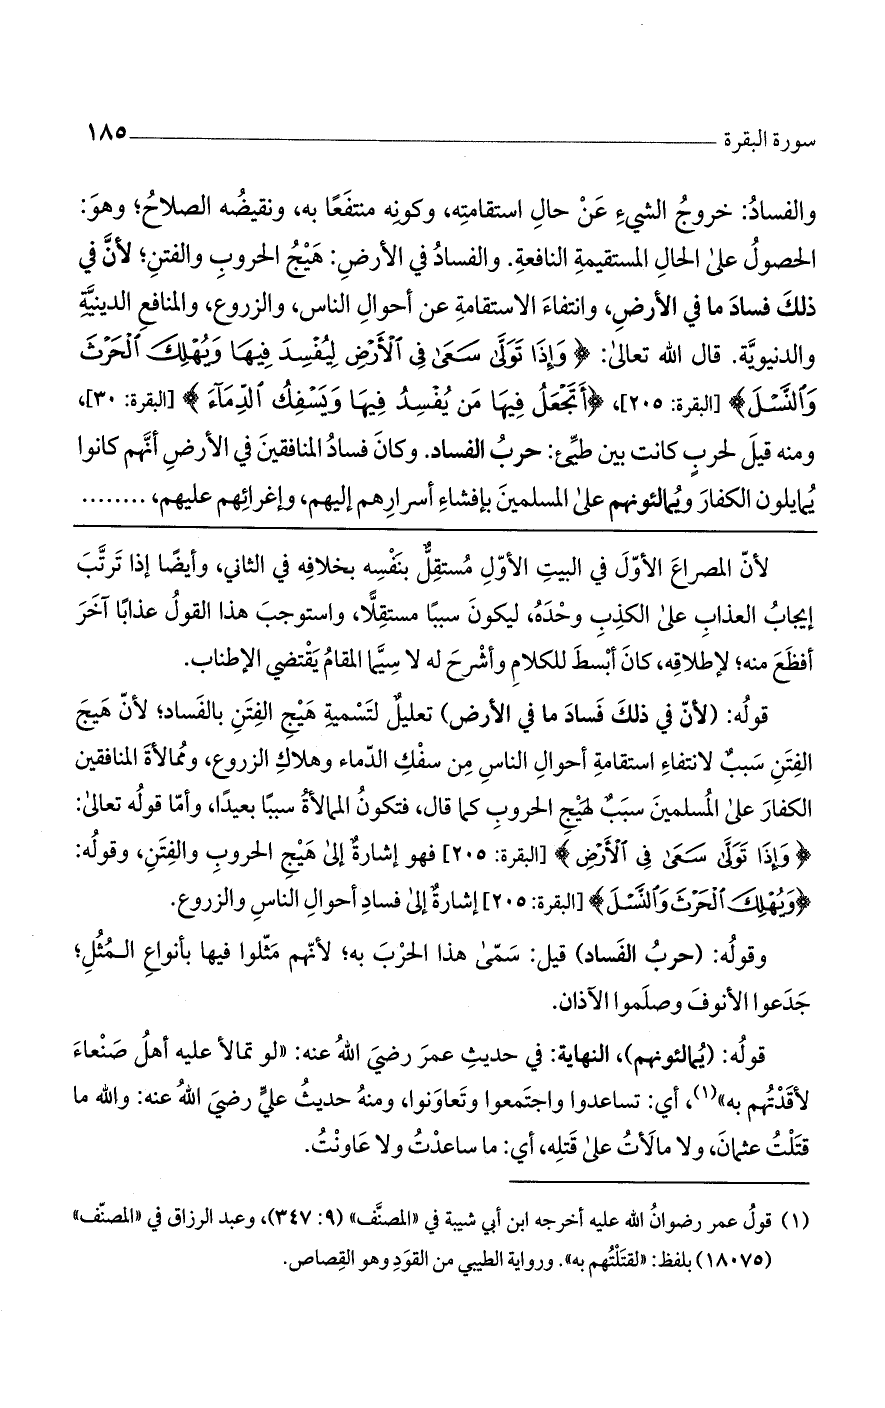 سورة البقرة ١٨٥
والفسادُ: خروجُ الشيءِ عَنْ حالِ استقامتِه، وكونِه منتفَعًا به، ونقيضُه الصلاحُ؛ وهوَ:
الحصولُ على الحالِ المستقيمةِ النافعةِ. والفسادُ في الأرضِ: هَيْجُ الحروبِ والفتنِ؛ لأنَّ في
ذلكَ فسادَ ما في الأرضِ، وانتفاءَ الاستقامةِ عن أحوالِ الناس، والزروع، والمنافعِ الدينيَّةِ
والدنيويَّة. قال الله تعالىٰ: ﴿وَإِذَا تَوَلَّىٰ سَعَىٰ فِى ٱلْأَرْضِ لِيُفْسِدَ فِيهَا وَيُهْلِكَ ٱلْحَرْثَ
وَٱلنَّسْلَ﴾ [البقرة: ٢٠٥]، ﴿أَتَجْعَلُ فِيهَا مَن يُفْسِدُ فِيهَا وَيَسْفِكُ ٱلدِّمَآءَ﴾ [البقرة: ٣٠]،
ومنه قيلَ لحربٍ كانت بين طيِّئ: حربُ الفساد. وكانَ فسادُ المنافقينَ في الأرضِ أنَّهم كانوا
يُمايلون الكفارَ ويُمالئونهم علىٰ المسلمينَ بإفشاءِ أسرارِهم إليهم، وإغرائِهم عليهم، ........
لأنّ المصراعَ الأوّلَ في البيتِ الأوّلِ مُستقِلٌّ بنَفْسِه بخلافِه في الثاني، وأيضًا إذا تَرتَّبَ
إيجابُ العذابِ علىٰ الكذِبِ وحْدَهُ، ليكونَ سببًا مستقِلًّا، واستوجبَ هذا القولُ عذابًا آخَرَ
أفظَعَ منه؛ لإطلاقِه، كانَ أبْسطَ للكلامِ وأشْرحَ له لا سِيَّما المقامُ يَقْتضي الإطناب.
قولُه: (لأنّ في ذلكَ فَسادَ ما في الأرض) تعليلٌ لتَسْميةِ هَيْجِ الفِتَنِ بالفَساد؛ لأنّ هَيجَ
الفِتَنِ سَببٌ لانتفاءِ استقامةِ أحوالِ الناسِ مِن سفْكِ الدّماء وهلاكِ الزروع، ومُمالأةَ المنافقين
الكفارَ علىٰ المُسلمينَ سبَبٌ لهيْجِ الحروبِ كما قال، فتكونُ الممالأةُ سببًا بعيدًا، وأمّا قولُه تعالىٰ:
﴿وَإِذَا تَوَلَّىٰ سَعَىٰ فِى ٱلْأَرْضِ﴾ [البقرة: ٢٠٥] فهو إشارةٌ إلىٰ هَيْجِ الحروبِ والفِتَنِ، وقولُه:
﴿وَيُهْلِكَ ٱلْحَرْثَ وَٱلنَّسْلَ﴾ [البقرة: ٢٠٥] إشارةٌ إلىٰ فسادِ أحوالِ الناسِ والزروع.
وقولُه: (حربُ الفَساد) قيل: سَمّىٰ هذا الحرْبَ به؛ لأنّهم مَثّلوا فيها بأنواعِ الـمُثُلِ؛
جَدَعوا الأنوفَ وصلَموا الآذان.
قولُه: (يُمالئونهم)، النهاية: في حديثِ عمرَ رضيَ اللهُ عنه: «لو تمالأ عليه أهلُ صَنْعاءَ
لأقَدْتُهم به»(١)، أي: تساعدوا واجتَمعوا وتَعاوَنوا، ومنهُ حديثُ عليٍّ رضيَ اللهُ عنه: والله ما
قتَلْتُ عثمانَ، ولا مالَأتُ علىٰ قَتلِه، أي: ما ساعدْتُ ولا عَاونْتُ.
(١) قولُ عمر رضوانُ الله عليه أخرجه ابن أبي شيبة في «المصنَّف» (٩: ٣٤٧)، وعبد الرزاق في «المصنّف»
(١٨٠٧٥) بلفظ: «لقتَلْتُهم به». ورواية الطيبي من القوَدِ وهو القِصاص.